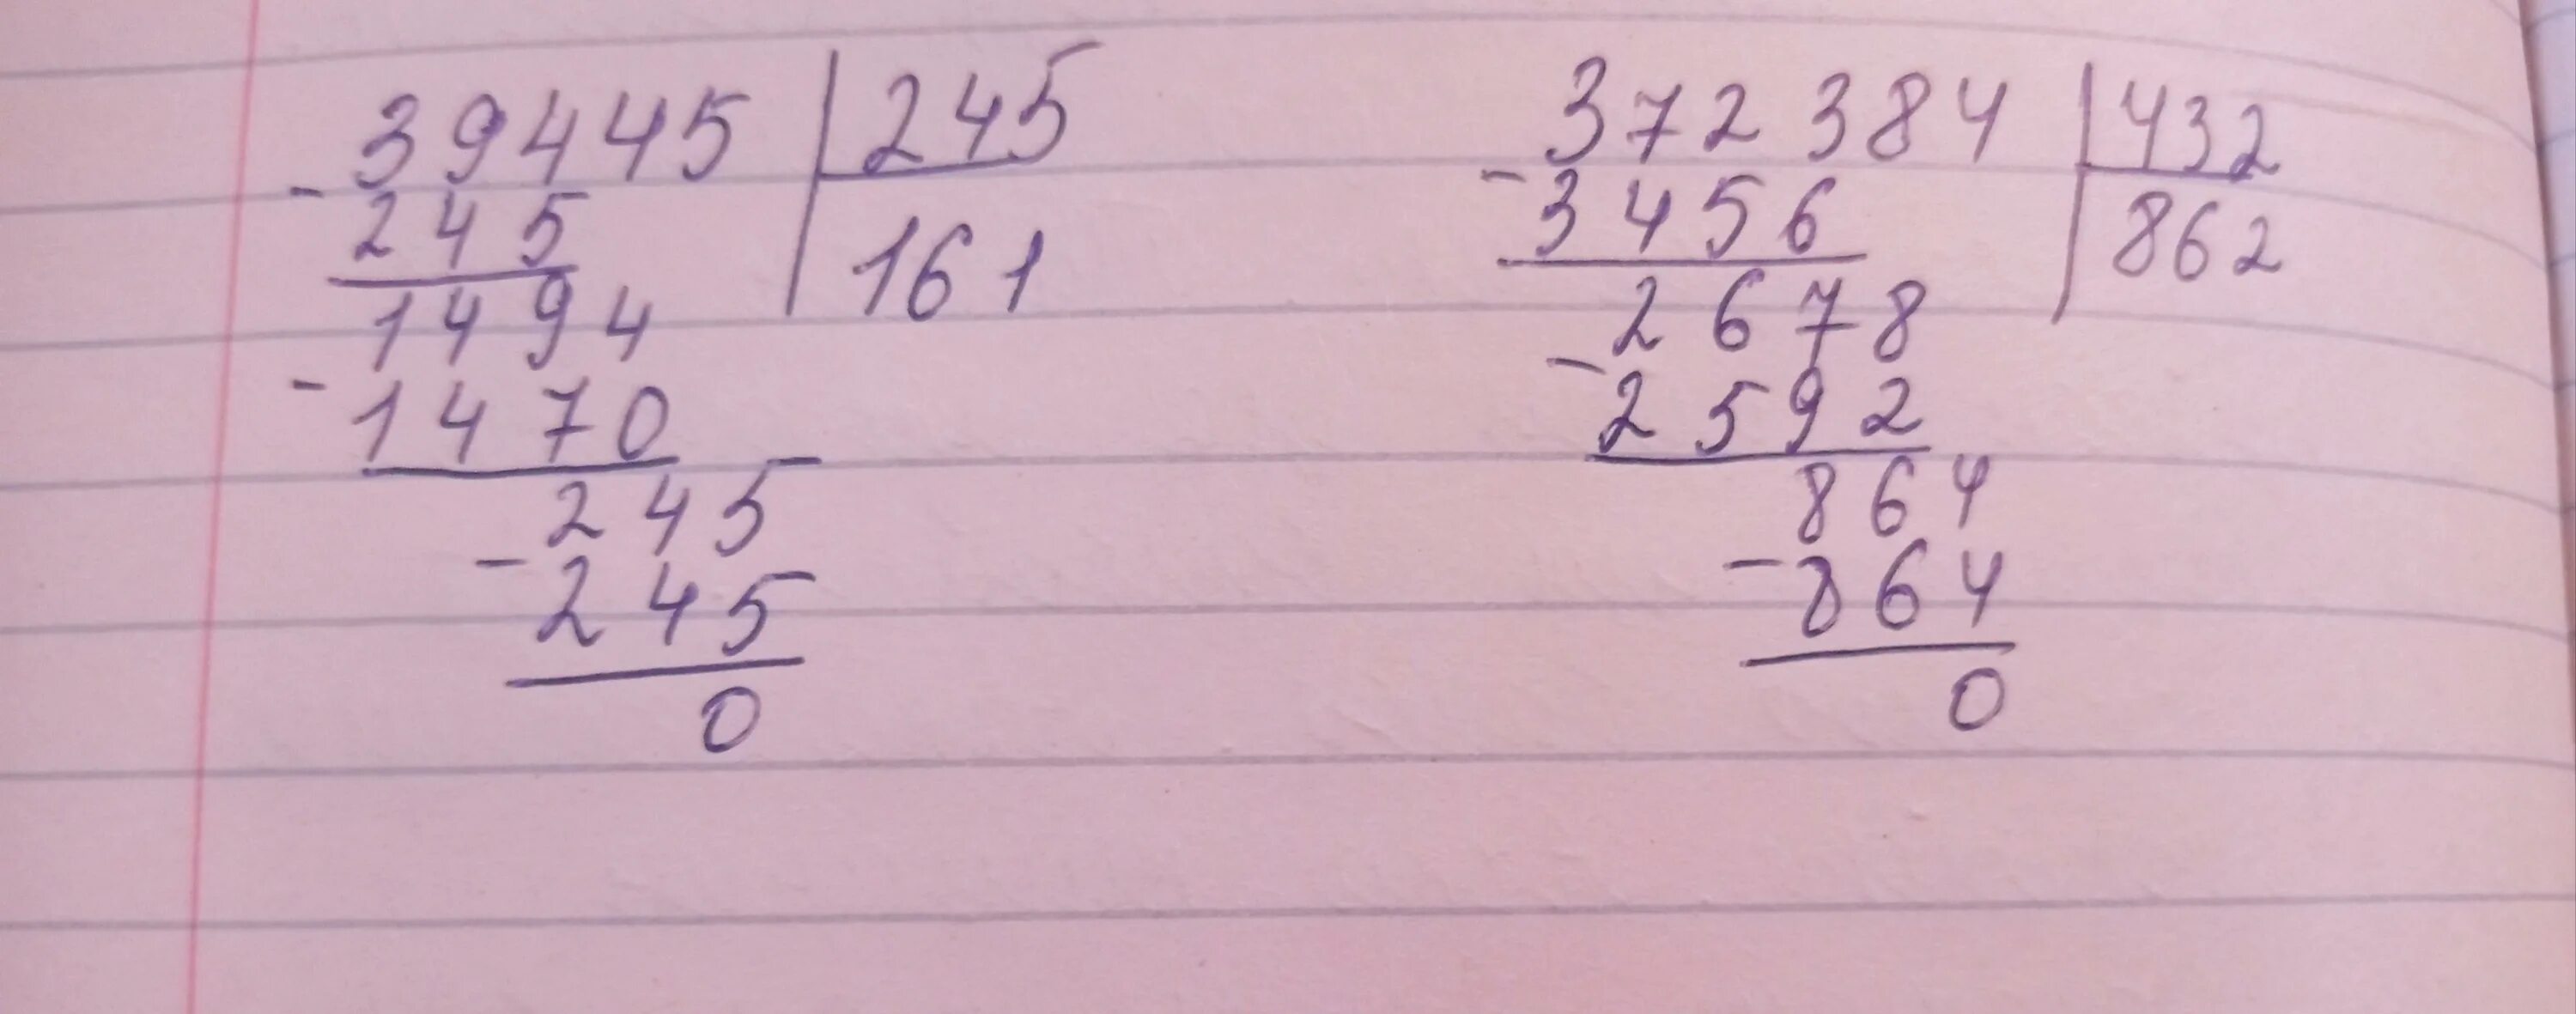 39445 245
- 245 161
1494
- 1470
245
- 245
0
372384 432
- 3456 862
2678
- 2592
864
- 864
0